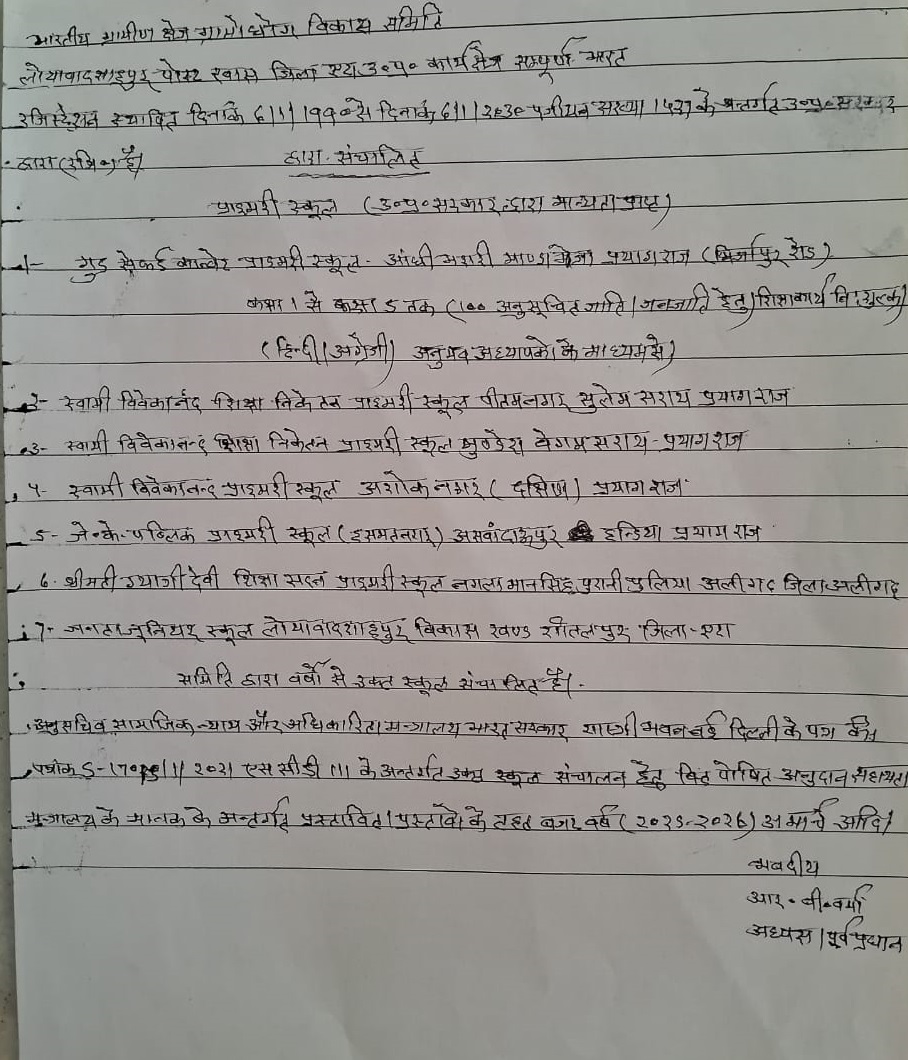 भारतीय ग्रामीण क्षेत्र ग्रामोद्योग विकास समिति
लोयावादशाहपुर पोस्ट खास जिला एटा उ०प्र० कार्यक्षेत्र सम्पूर्ण भारत
रजिस्ट्रेशन स्थापित दिनांक 6/1/1990 से दिनांक 6/1/2030 पंजीयन संख्या 1527 के अन्तर्गत उ०प्र० सरकार
द्वारा (रजि०) है।
द्वारा संचालित
प्राइमरी स्कूल (उ०प्र० सरकार द्वारा मान्यता प्राप्त)
1- गुड सेफर्ड कान्वेंट प्राइमरी स्कूल- आंधी मवारी प्रयागराज (मिर्जापुर रोड)
कक्षा 1 से कक्षा 5 तक (100 अनुसूचित जाति/जनजाति हेतु) शिक्षाकार्य नि:शुल्क
(हिन्दी/अंग्रेजी) अनुभव अध्यापको के माध्यम से)
2- स्वामी विवेकानंद शिक्षा निकेतन प्राइमरी स्कूल प्रीतमनगर सुलेम सराय प्रयागराज
3- स्वामी विवेकानन्द शिक्षा निकेतन प्राइमरी स्कूल मुण्डेरा वेगम सराय- प्रयागराज
4- स्वामी विवेकानन्द प्राइमरी स्कूल अशोक नगर (दक्षिण) प्रयागराज
5- जे०के० पब्लिक प्राइमरी स्कूल (इसमतनगर) असवांदाऊपुर हन्डिया प्रयागराज
6. श्रीमती ग्याजी देवी शिक्षा सदन प्राइमरी स्कूल नगला मानसिंह पुरानी पुलिया अलीगढ़ जिला-अलीगढ़
7- जनता जूनियर स्कूल लोयावादशाहपुर विकास खण्ड शीतलपुर जिला- एटा
समिति द्वारा वर्षों से उक्त स्कूल संचालित है।
अनुसचिव सामाजिक न्याय और अधिकारिता मन्त्रालय भारत सरकार शास्त्री भवन नई दिल्ली के पत्र
पत्रांक 2021 एस सी डी III के अन्तर्गत उक्त स्कूल संचालन हेतु वित पोषित अनुदान सहायता
मन्त्रालय के मानक के अन्तर्गत प्रस्तावित। प्रस्तावो के तहत बजट वर्ष (2025-2026) मार्च आदि।
भवदीय
आर० वी० वर्मा
अध्यक्ष/पूर्व प्रधान